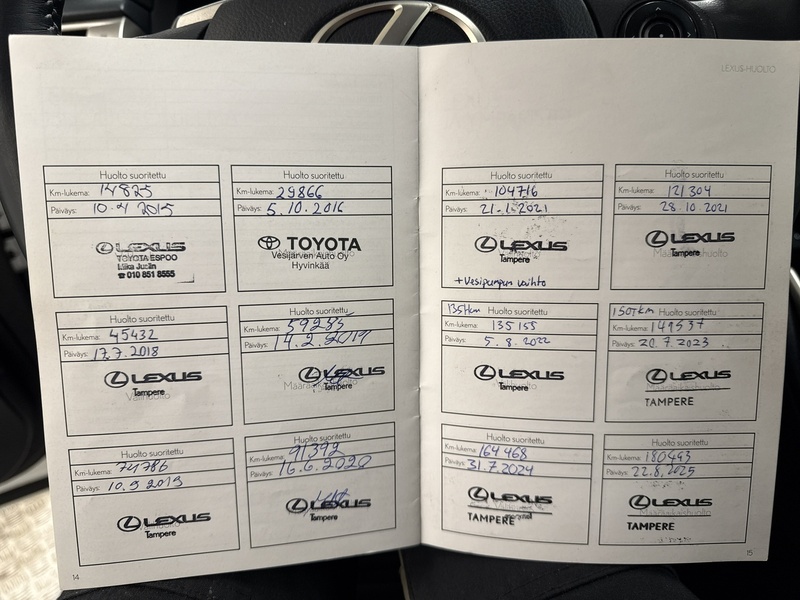 Huolto suoritettu
Km-lukema: 14825
Päiväys: 2015
LEXUS
TOYOTA ESPOO
☎ 010 851 8555
Huolto suoritettu
Km-lukema: 29866
Päiväys: 5.10.2016
TOYOTA
Vesijärven Auto Oy
Hyvinkää
Huolto suoritettu
Km-lukema: 45432
Päiväys: 17.7.2018
LEXUS
Tampere
Välihuolto
Huolto suoritettu
Km-lukema: 59285
Päiväys: 14.2.2019
LEXUS
Tampere
Huolto suoritettu
Km-lukema: 74786
Päiväys: 10.9.2019
LEXUS
Tampere
Huolto suoritettu
Km-lukema: 91392
Päiväys: 16.6.2020
LEXUS
Tampere
14
LEXUS-HUOLTO
Huolto suoritettu
Km-lukema: 104716
Päiväys: 21.1.2021
LEXUS
Tampere
+Vesipumpun vaihto
Huolto suoritettu
Km-lukema: 121304
Päiväys: 28.10.2021
LEXUS
Tampere
135tkm Huolto suoritettu
Km-lukema: 135155
Päiväys: 5.8.2022
LEXUS
Tampere
150TKM Huolto suoritettu
Km-lukema: 149537
Päiväys: 20.7.2023
LEXUS
TAMPERE
Huolto suoritettu
Km-lukema: 164468
Päiväys: 31.7.2024
LEXUS
TAMPERE
Huolto suoritettu
Km-lukema: 180493
Päiväys: 22.8.2025
LEXUS
Määräaikaishuolto
TAMPERE
15